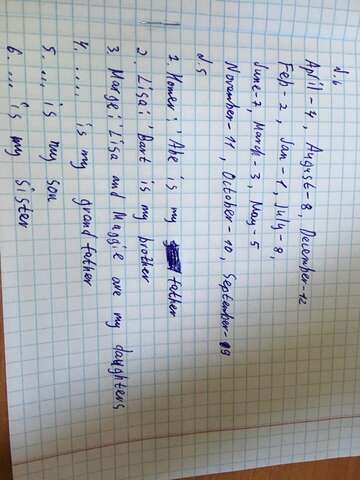 N.6
April-4, August-8, December-12
Feb-2, Jan-1, July-8,
June-7, March-3, May-5
November-11, October-10, September-9
N.5
1. Homer: "Abe is my father
2. Lisa: "Bart is my brother
3. Marge: "Lisa and Maggie are my daughters
4. .... is my grandfather
5. ... is my son
6. .... is my sister